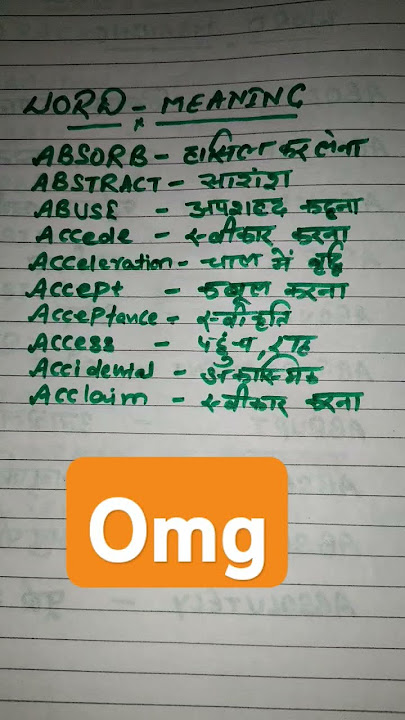 WORD - MEANING
ABSORB - हासिल कर लेना
ABSTRACT - सारांश
ABUSE - अपशब्द कहना
Accede - स्वीकार करना
Acceleration - चाल में वृद्धि
Accept - कबूल करना
Acceptance - स्वीकृति
Access - पहुंच, राह
Accidental - अकास्मिक
Acclaim - स्वीकार करना
Omg
ABSOLUTELY